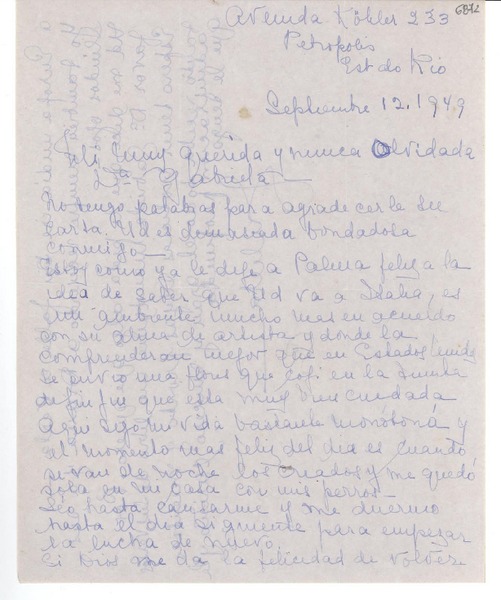 6B72
Avenida Köhler 233
Petropolis
Est do Rio
Septiembre 12. 1949
Mi muy querida y nunca Olvidada
Gabriela —
No tengo palabras para agradecerle su
carta. Ud es demasiada bondadosa
conmigo —
Estoy como ya le dije a Palma feliz a la
idea de saber que Ud va a Italia, es
un ambiente mucho mas en acuerdo
con su alma de artista y donde la
comprenderan mejor que en Estados Unidos
Le envio una flores que cogi en la tumba
de Yin Yin que esta muy bien cuidada
Aqui sigo mi vida bastante monótona y
el momento mas feliz del dia es cuando
se van de noche los criados y me quedo
sola en mi casa con mis perros —
Leo hasta cansarme y me duermo
hasta el dia siguiente para empezar
la lucha de nuevo.
Si Dios me da la felicidad de volver